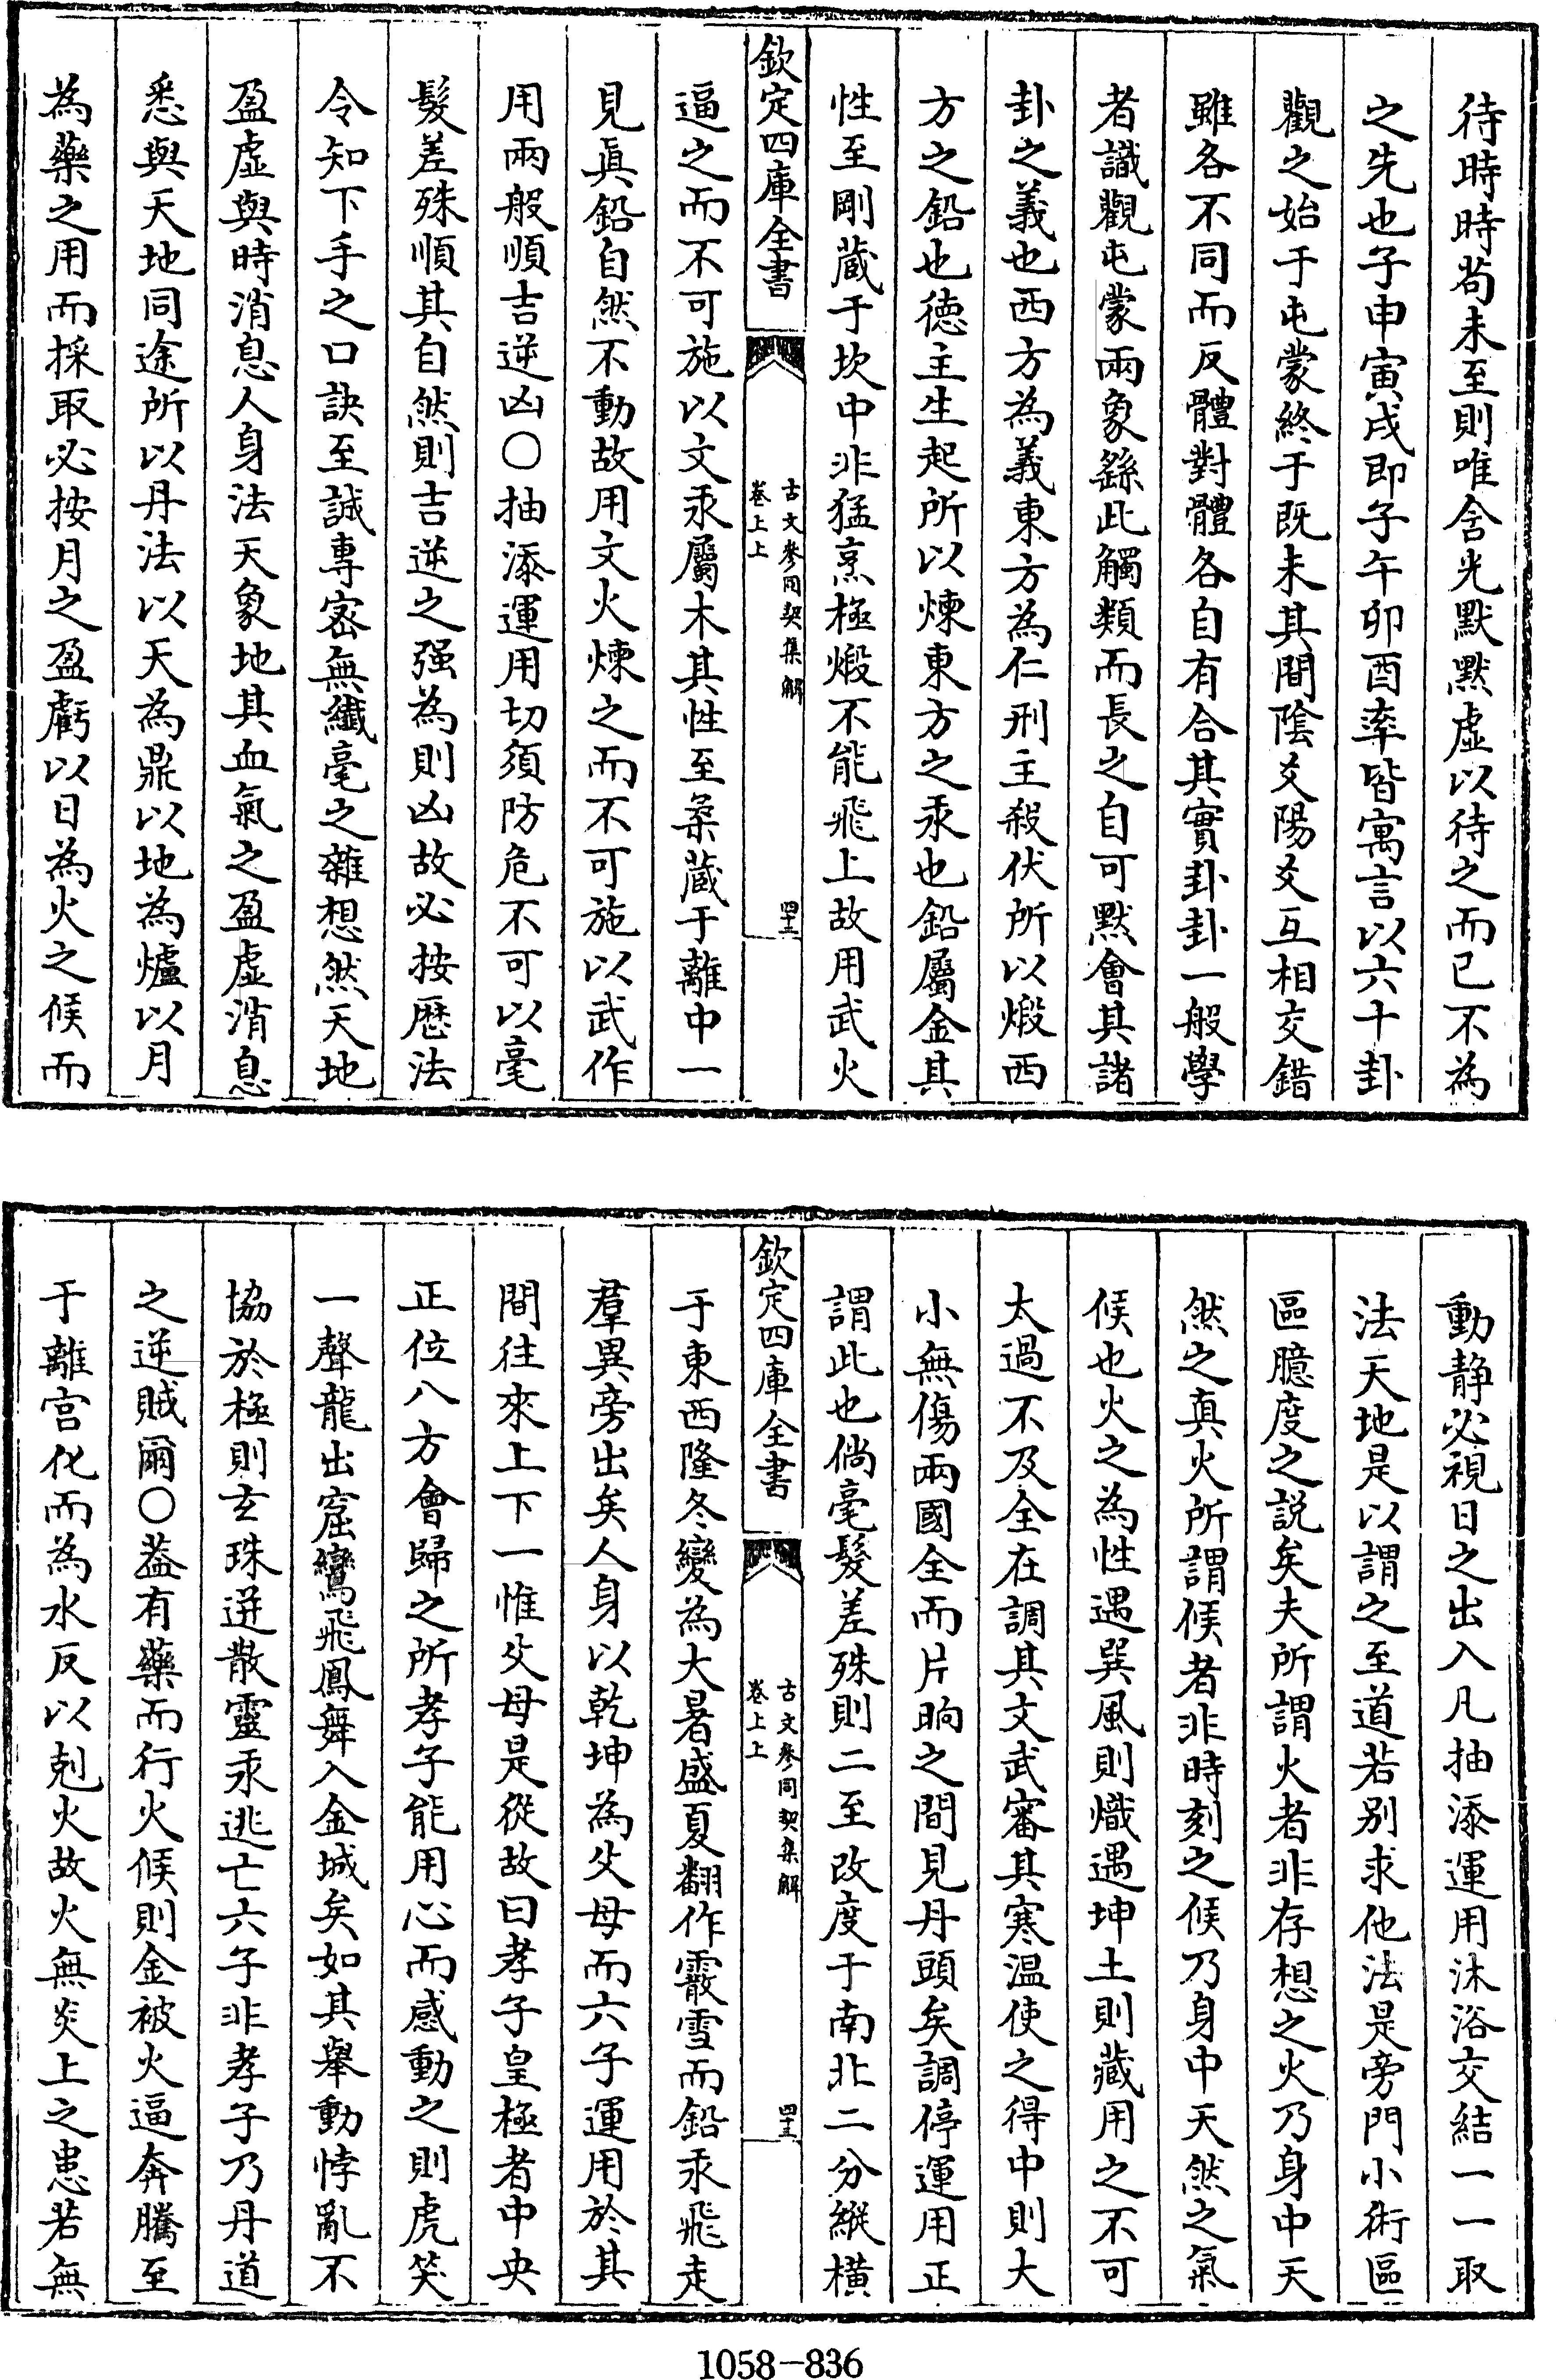 待時時茍未至則唯含光默默虛以待之而已不為
之先也子申寅戌即子午卯酉率皆寓言以六十卦
觀之始于屯蒙終于既未其間陰爻陽爻互相交錯
雖各不同而反體對體各自有合其實卦卦一般學
者識觀屯蒙兩象繇此觸類而長之自可默會其諸
卦之義也西方為義東方為仁刑主殺伏所以煅西
方之鉛也德主生起所以煉東方之汞也鉛屬金其
性至剛藏于坎中非猛烹極煅不能飛上故用武火
欽定四庫全書
古文參同契集解
卷上上
四十三
逼之而不可施以文汞屬木其性至柔藏于離中一
見真鉛自然不動故用文火煉之而不可施以武作
用兩般順吉逆凶○抽添運用切須防危不可以毫
髮差殊順其自然則吉逆之强為則凶故必按厯法
令知下手之口訣至誠專宻無纖毫之雜想然天地
盈虛與時消息人身法天象地其血氣之盈虛消息
悉與天地同途所以丹法以天為鼎以地為爐以月
為藥之用而採取必按月之盈虧以日為火之候而
動静必視日之出入凡抽添運用沐浴交結一一取
法天地是以謂之至道若别求他法是旁門小術區
區臆度之説矣夫所謂火者非存想之火乃身中天
然之真火所謂候者非時刻之候乃身中天然之氣
候也火之為性遇巽風則熾遇坤土則藏用之不可
太過不及全在調其文武審其寒温使之得中則大
小無傷兩國全而片晌之間見丹頭矣調停運用正
謂此也倘毫髮差殊則二至改度于南北二分縱橫
欽定四庫全書
古文參同契集解
卷上上
四十三
于東西隆冬變為大暑盛夏翻作霰雪而鉛汞飛走
羣異旁出矣人身以乾坤為父母而六子運用於其
間往來上下一惟父母是從故曰孝子皇極者中央
正位八方會歸之所孝子能用心而感動之則虎笑
一聲龍出窟鸞飛鳳舞入金城矣如其舉動悖亂不
協於極則玄珠迸散靈汞逃亡六子非孝子乃丹道
之逆賊爾○葢有藥而行火候則金被火逼奔騰至
于離宫化而為水反以剋火故火無炎上之患若無
1058-836